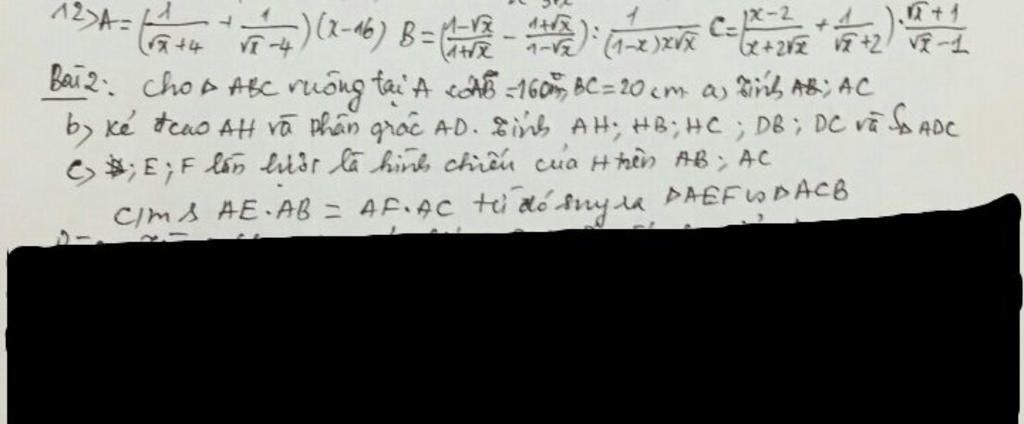 12> A = (1/(√x+4) + 1/(√x-4)) (x-16) B = ((1-√x)/(1+√x) - (1+√x)/(1-√x)) : 1/((1-x)x√x) C = ((x-2)/(x+2√x) + 1/(√x+2)) . (√x+1)/(√x-1)
Bài 2: Cho Δ ABC vuông tại A có BC = 20 cm a, Tính AB; AC
b> Kẻ đcao AH và phân giác AD. Tính AH; HB; HC; DB; DC và S ADC
c> E; F lần lượt là hình chiếu của H trên AB; AC
C/m AE.AB = AF.AC từ đó suy ra ΔAEF ∽ ΔACB